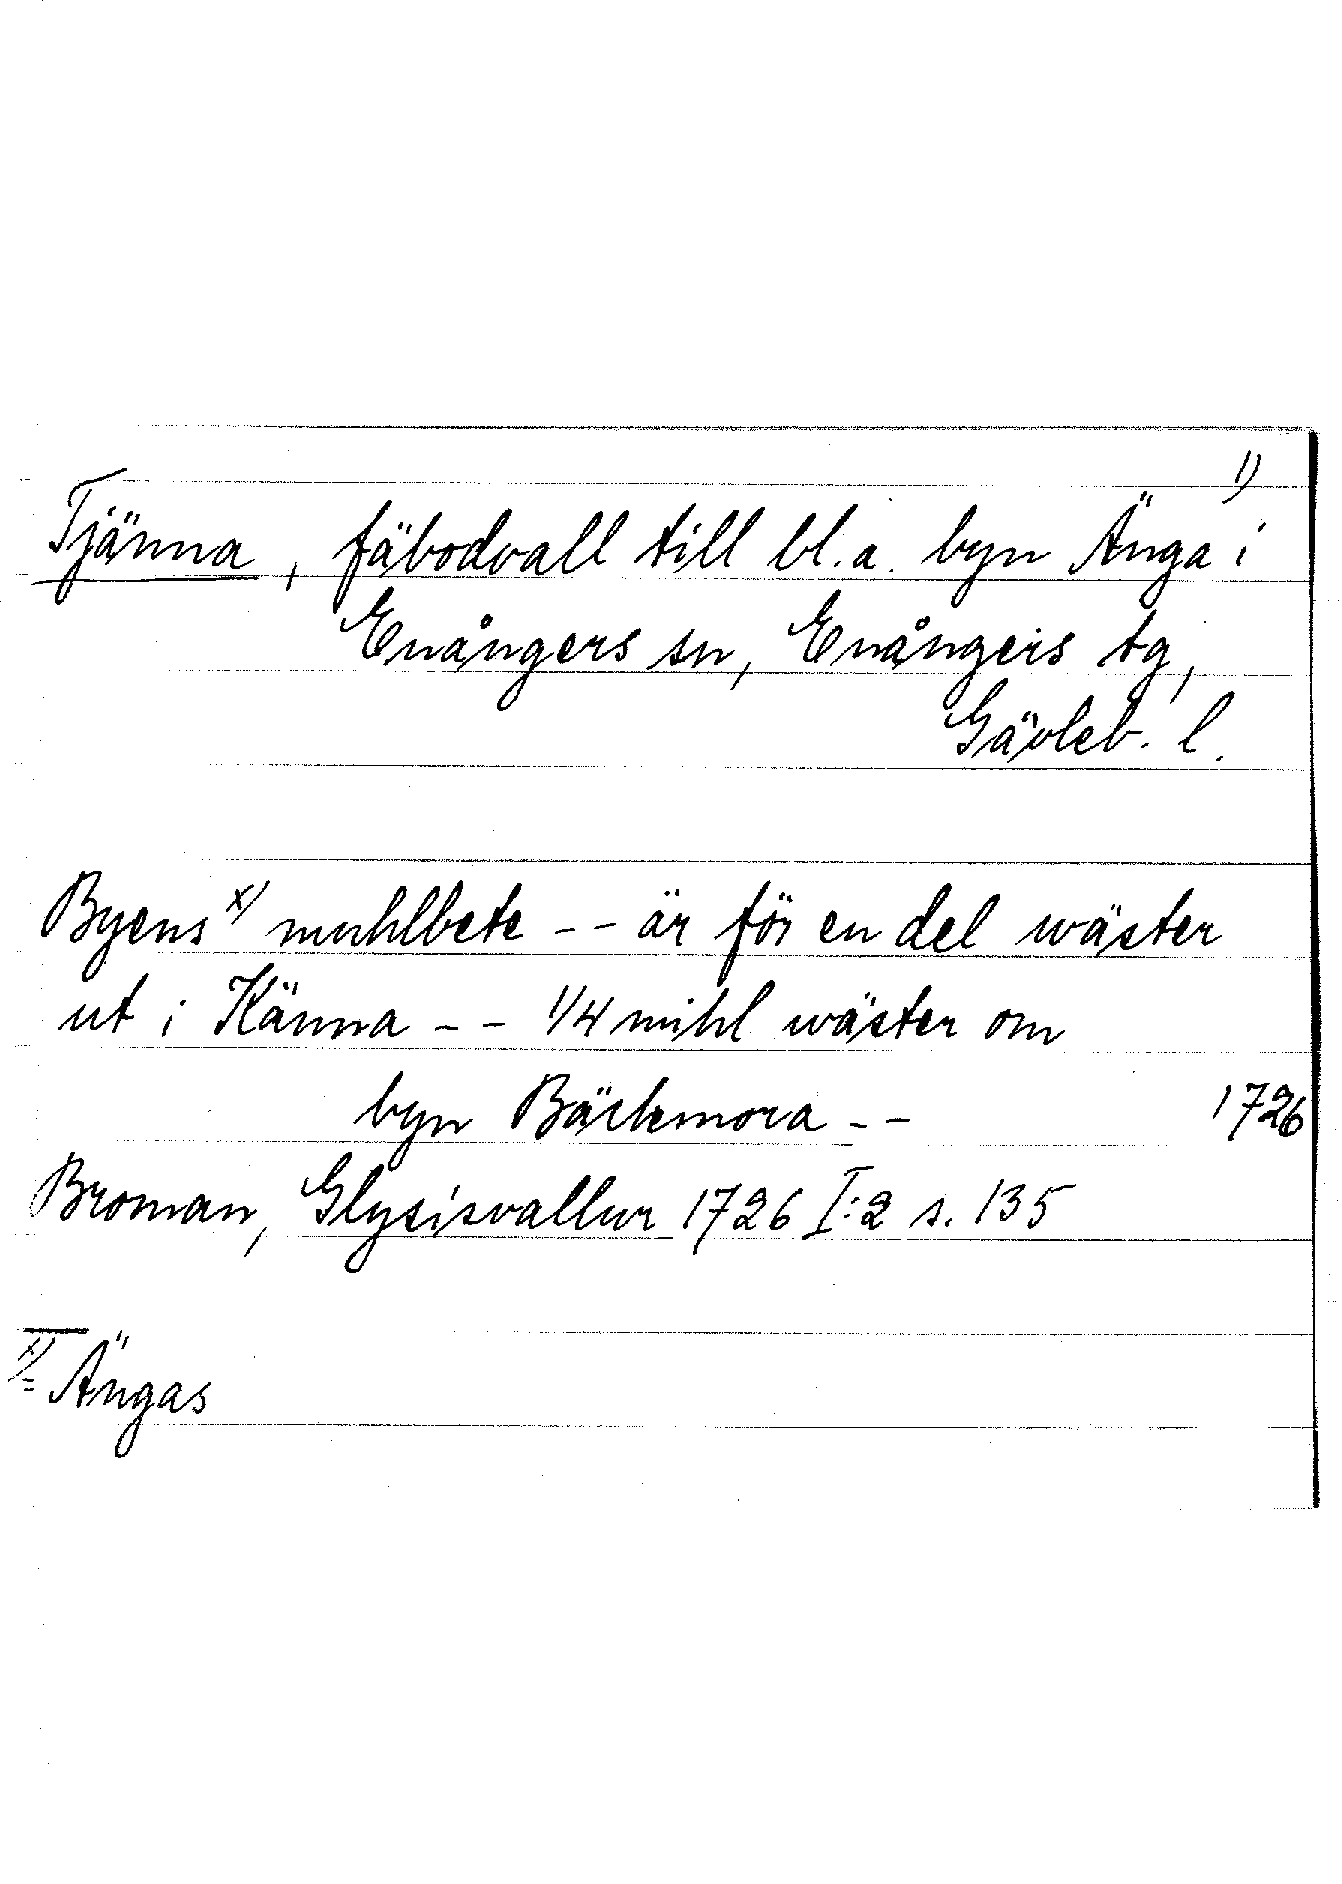 1)
Tjänna, fäbodvall till bl.a. byn Änga i
Enångers sn, Enångers tg,
Gävleb. l.
Byens x) muhlbete -- är för en del wäster
ut i Känna -- 1/4 mihl wäster om
byn Bäckmora --
1726
Broman, Glysisvallur 1726 I:2 s. 135
x)
= Ängas